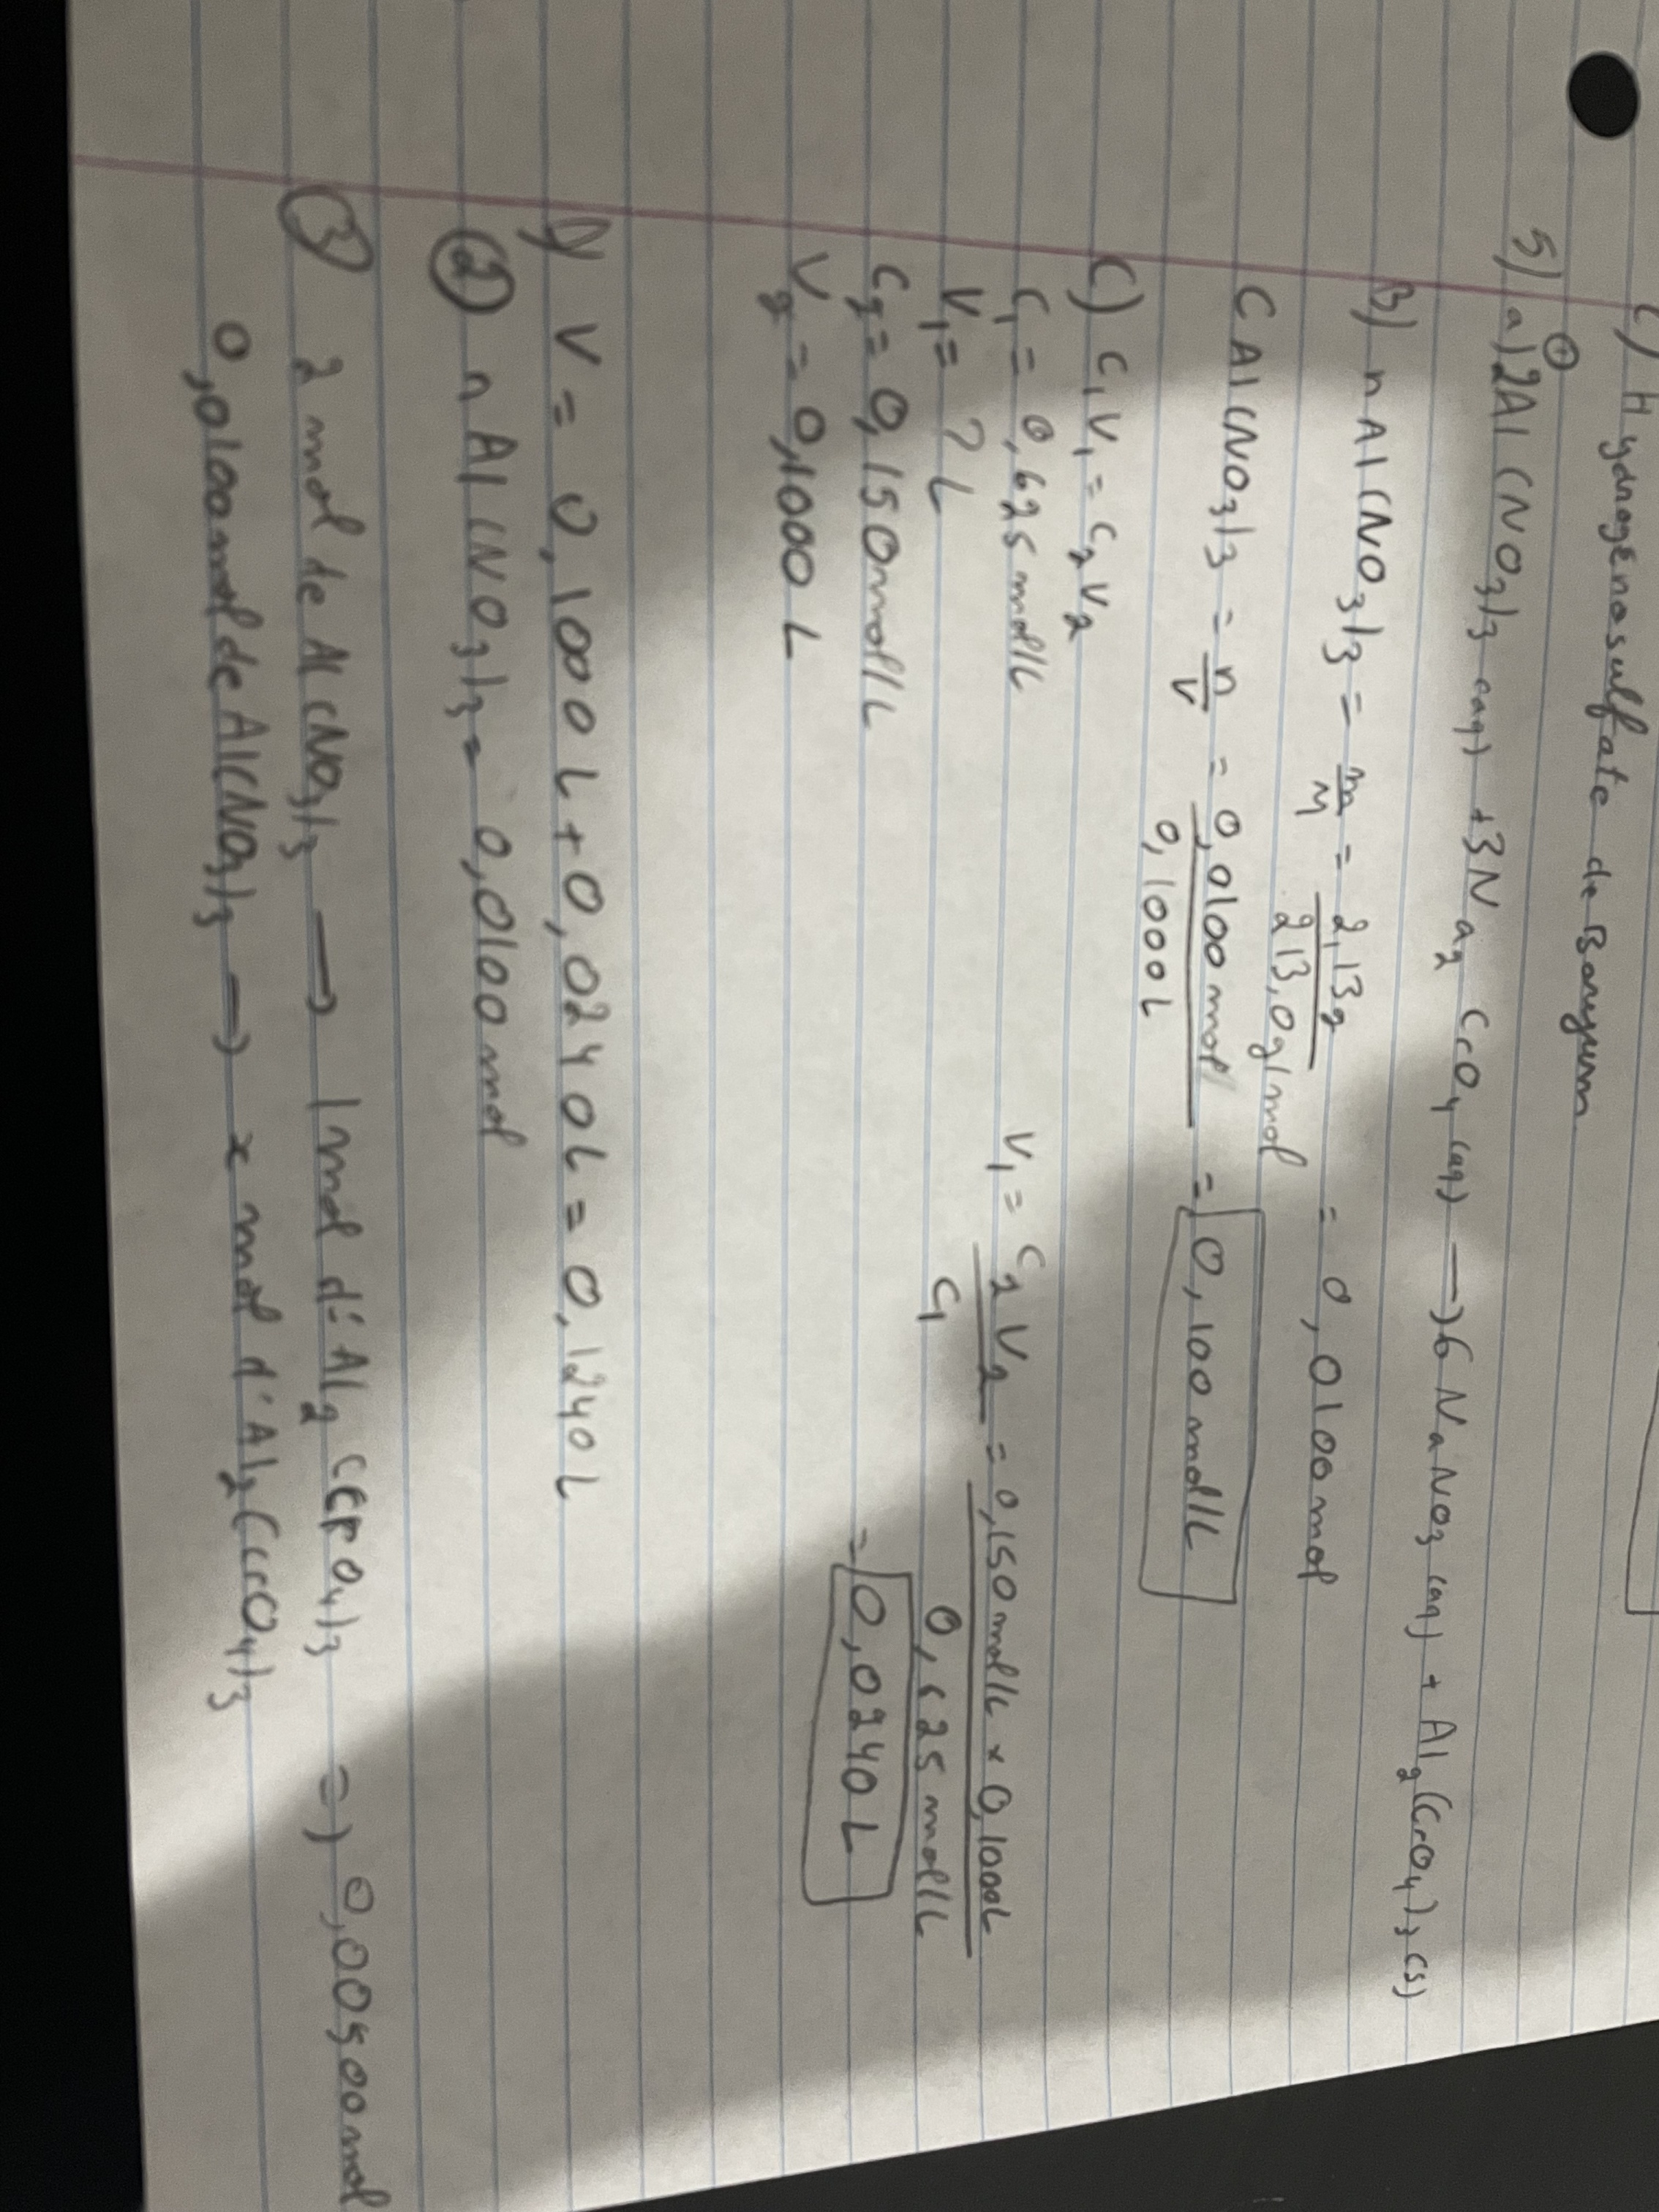 c) Hydrogénosulfate de Baryum
5) a) ① 2Al(NO3)3 (aq) + 3Na2CrO4 (aq) → 6NaNO3 (aq) + Al2(CrO4)3 (s)
B) nAl(NO3)3 = m/M = 2,13g / 213,0g/mol = 0,0100 mol
CAl(NO3)3 = n/V = 0,0100 mol / 0,1000 L = 0,100 mol/L
C) C1V1 = C2V2
C1 = 0,625 mol/L
V1 = ? L
C2 = 0,150 mol/L
V2 = 0,1000 L
V1 = C2V2 / C1 = 0,150 mol/L × 0,1000L / 0,625 mol/L
= 0,0240 L
D) V = 0,1000 L + 0,0240 L = 0,1240 L
② nAl(NO3)3 = 0,0100 mol
③ 2 mol de Al(NO3)3 → 1 mol d'Al2(CrO4)3 => 0,00500 mol
0,0100 mol de Al(NO3)3 → x mol d'Al2(CrO4)3